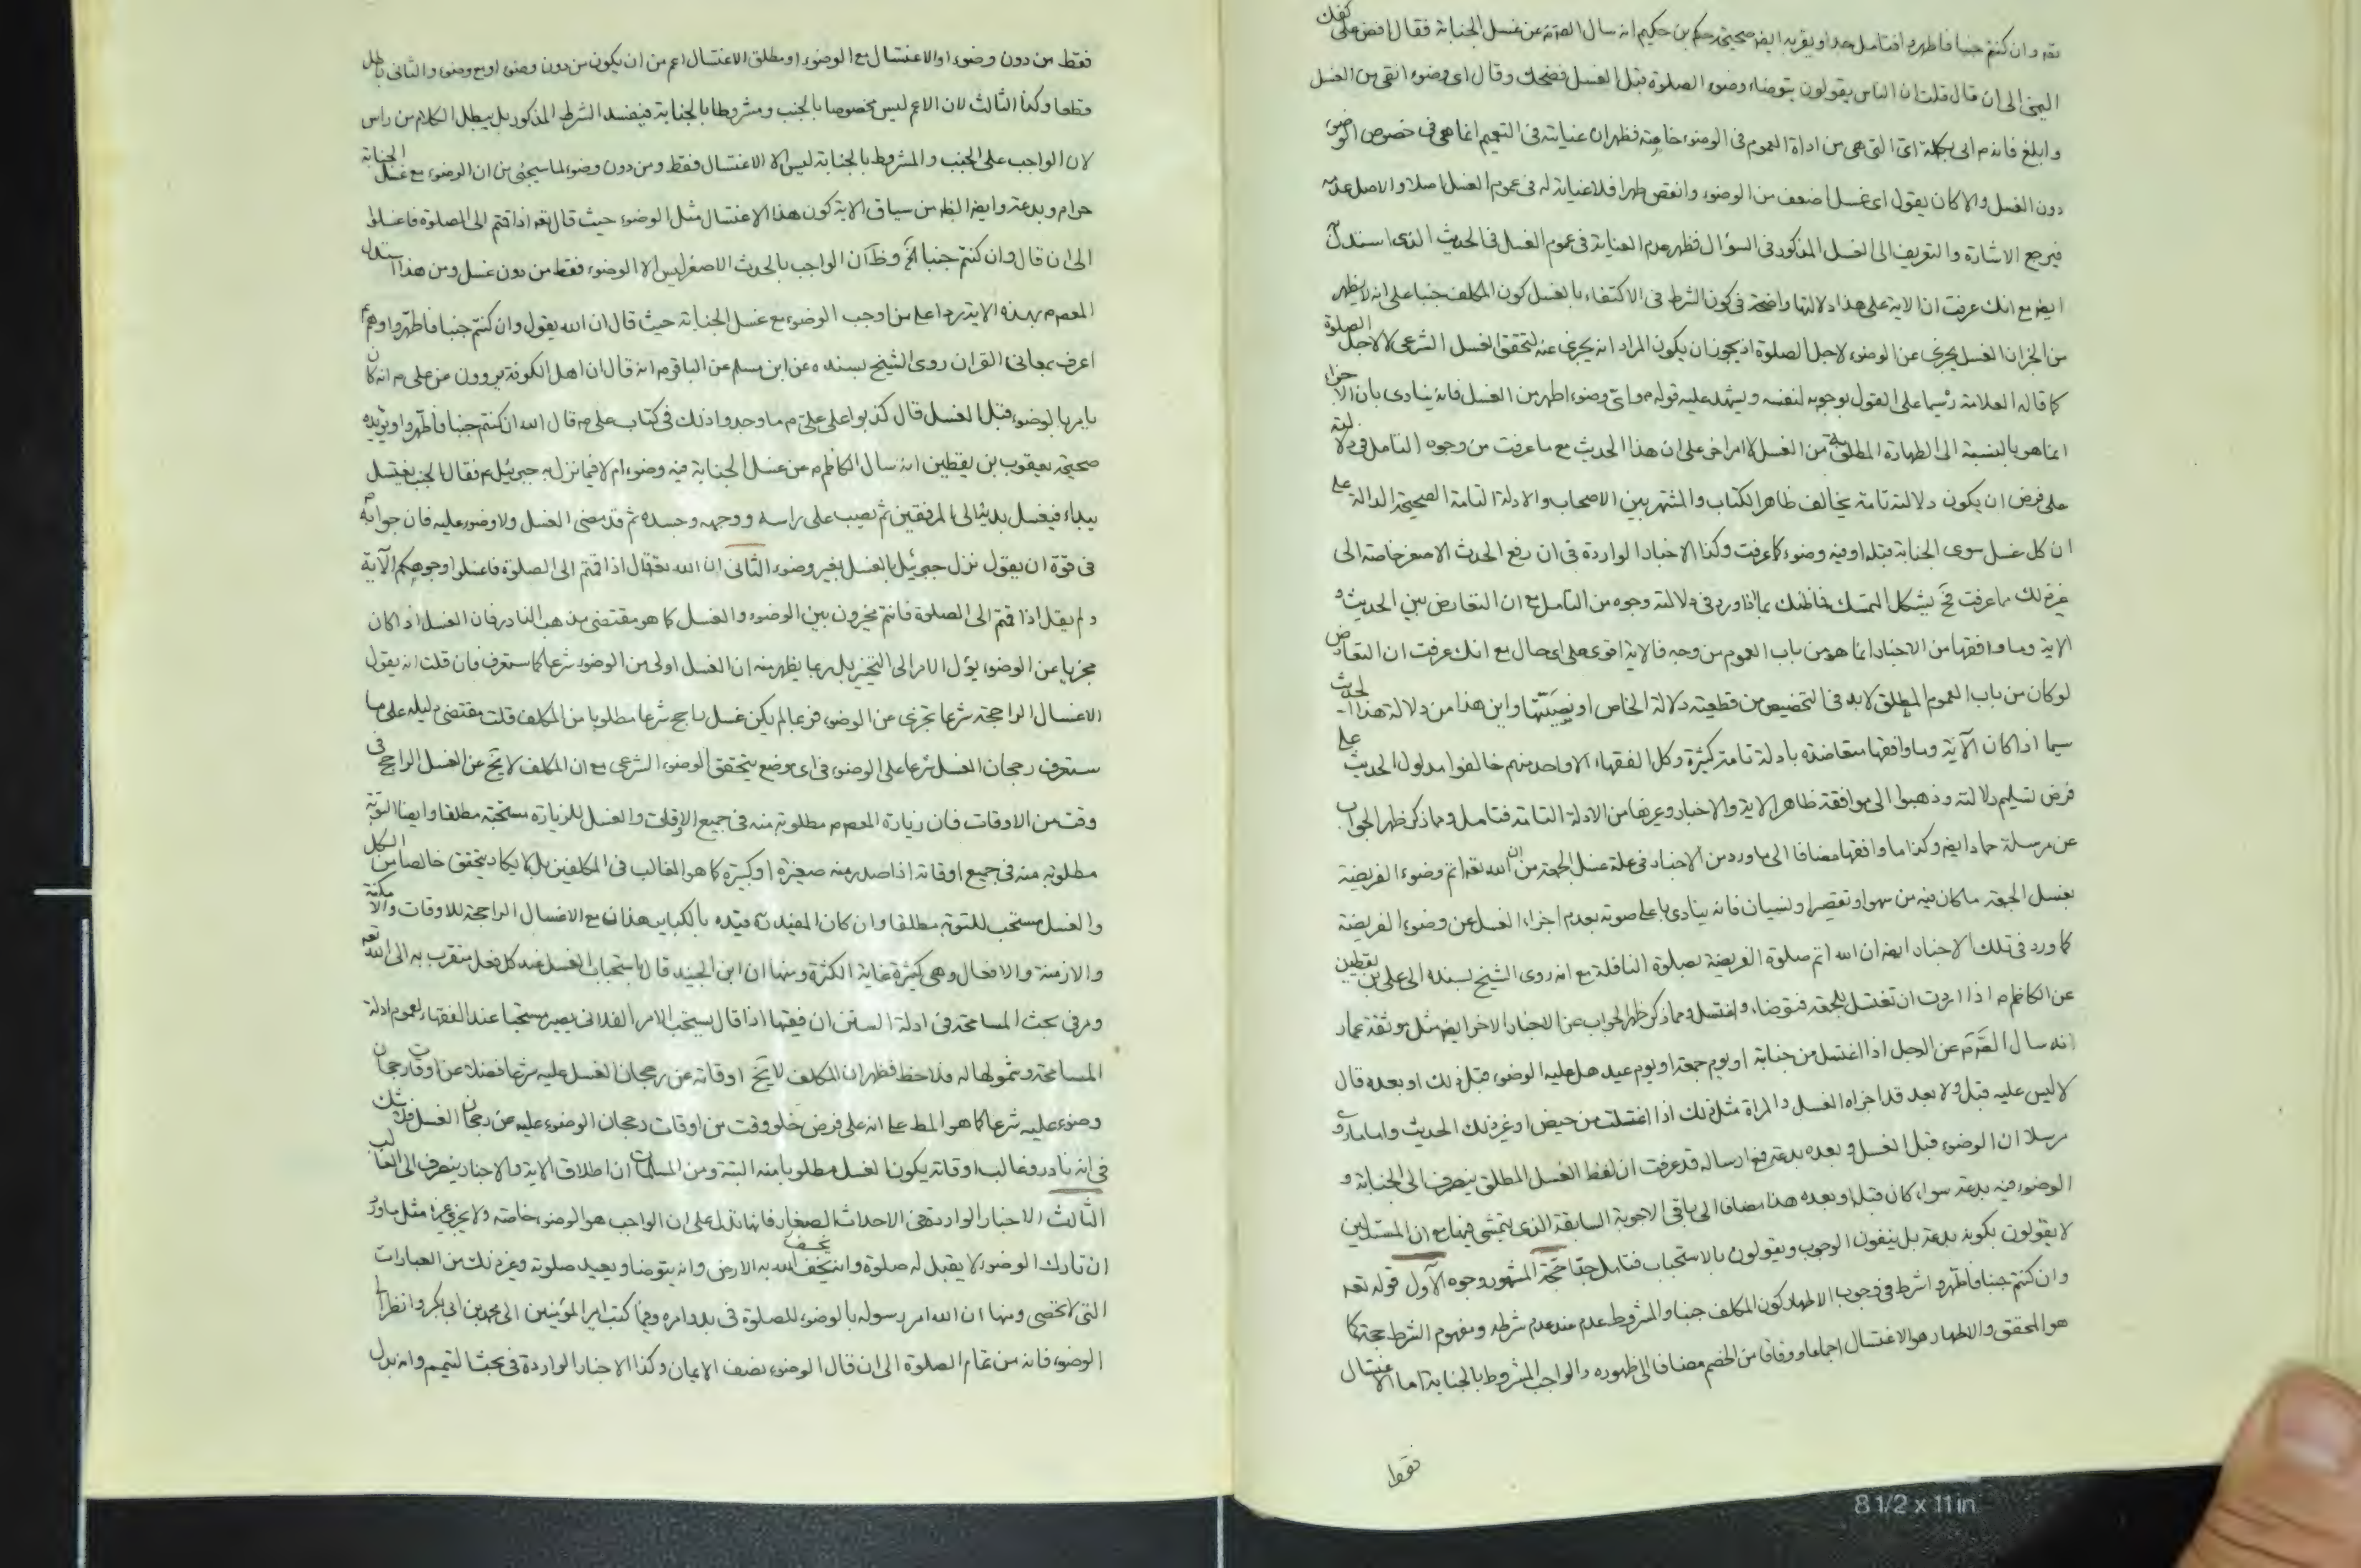 تعه وان كنتم جنبا فاطهروا فتامل جدا ويقربه ايضا صحيحة حكم بن حكيم انه سال الصادق عن غسل الجنابة فقال افض على كفك
اليمنى الى ان قال قلت ان الناس يقولون يتوضاء وضوء الصلوة قبل الغسل فضحك وقال اى وضوء انقى من الغسل
وابلغ فانه م اتى بكلمة اى التى هى من اداة العموم فى الوضوء خاصة فظهر ان عنايته فى التعميم انما هى فى خصوص الوضوء
دون الغسل والا كان يقول اى غسل اضعف من الوضوء وانقص طهرا فلا عناية له فى عموم الغسل اصلا والاصل عدمه
فيرجع الاشارة والتعريف الى الغسل المذكور فى السؤال فظهر عدم العناية فى عموم الغسل فى الحديث الذى استدل به
ايضا مع انك عرفت ان الاية على هذا دلالتها واضحة فى كون الشرط فى الاكتفاء بالغسل كون المكلف جنبا على انه لا يظهر
من الخبر ان الغسل يجزى عن الوضوء لاجل الصلوة اذ يجوز ان يكون المراد انه يجزى عنه لتحقق الغسل الشرعى لا لاجل الصلوة
كما قاله العلامة سيما على القول بوجوبه لنفسه ويشهد عليه قوله م واى وضوء اطهر من الغسل فانه ينادى بان الاجزاء
انما هو بالنسبة الى الطهارة المطلقة من الغسل لا امر اخر على ان هذا الحديث مع ما عرفت من وجوه التامل فى دلالته
على فرض ان يكون دلالته تامة يخالف ظاهر الكتاب والمشتهر بين الاصحاب والادلة التامة الصحيحة الدالة على
ان كل غسل سوى الجنابة قبله او فيه وضوء كما عرفت وكذا الاخبار الواردة فى ان رفع الحدث الاصغر خاصة الى
غير ذلك مما عرفت فح يشكل التمسك فاظنك بما اذا ورد فى دلالته وجوه من التامل مع ان التعارض بين الحديث و
الاية وما وافقها من الاخبار انما هو من باب العموم من وجه فالاية اقوى على اى حال مع انك عرفت ان التعارض
لو كان من باب العموم المطلق لا بد فى التخصيص من قطعية دلالة الخاص او نصيتها واين هذا من دلالة هذا الحديث
سيما اذا كان الآية وما وافقها متعاضدة بادلة تامة كثيرة وكل الفقهاء الا واحد منهم خالفوا مدلول الحديث على
فرض تسليم دلالته وذهبوا الى موافقة ظاهر الاية والاخبار وغيرها من الادلة التامة فتامل ومما ذكر ظهر الجواب
عن مرسلة حماد ايضا وكذا ما وافقها مضافا الى ما ورد من الاخبار فى علة غسل الجمعة من ان الله تعه اتم وضوء الفريضة
بغسل الجمعة ما كان فيه من سهو او تقصير او نسيان فانه ينادى باعلى صوته بعدم اجزاء الغسل عن وضوء الفريضة
كما ورد فى تلك الاخبار ايضا ان الله اتم صلوة الفريضة بصلوة النافلة مع انه روى الشيخ بسنده الى على بن يقطين
عن الكاظم م اذا اردت ان تغتسل للجمعة فتوضا واغتسل ومما ذكر ظهر الجواب عن الاخبار الاخر ايضا مثل موثقة عمار
انه سال الصادق م عن الرجل اذا اغتسل من جنابة او يوم جمعة او يوم عيد هل عليه الوضوء قبل ذلك او بعده قال
لا ليس عليه قبل ولا بعد قد اجزاه الغسل والمراة مثل ذلك اذا اغتسلت من حيض او غير ذلك الحديث واما ما روى
مرسلا ان الوضوء قبل الغسل وبعده بدعة فمع ارساله قد عرفت ان لفظ الغسل المطلق ينصرف الى الجنابة و
الوضوء فيه بدعة سواء كان قبله او بعده هذا مضافا الى باقى الاجوبة السابقة الذى يتمشى فيها مع ان المستدلين
لا يقولون بكونه بدعة بل ينفون الوجوب ويقولون بالاستحباب فتامل جدا حجة المشهور وجوه الآول قوله تعه
وان كنتم جنبا فاطهروا شرط فى وجوب الاطهار كون المكلف جنبا والمشروط عدم عند عدم شرطه ومفهوم الشرط حجة كما
هو المحقق والاطهار هو الاغتسال اجماعا ووفاقا من الخصم مضافا الى ظهوره والواجب المشروط بالجنابة اما الاغتسال
فقط
فقط من دون وضوء او الاغتسال مع الوضوء او مطلق الاغتسال اعم من ان يكون من دون وضوء او مع وضوء والثانى باطل
قطعا وكذا الثالث لان الاعم ليس مخصوصا بالجنب ومشروطا بالجنابة فيفسد الشرط المذكور بل يبطل الكلام من راس
لان الواجب على الجنب والمشروط بالجنابة ليس الا الاغتسال فقط ومن دون وضوء لما سيجئ من ان الوضوء مع غسل الجنابة
حرام وبدعة وايضا الظ من سياق الاية كون هذا الاغتسال مثل الوضوء حيث قال تعه اذا قمتم الى الصلوة فاغسلوا
الى ان قال وان كنتم جنبا الخ وظ ان الواجب بالحدث الاصغر ليس الا الوضوء فقط من دون غسل ومن هذا استدل
المعصوم بهذه الاية ردا على من اوجب الوضوء مع غسل الجنابة حيث قال ان الله يقول وان كنتم جنبا فاطهروا وهم
اعرف بمعانى القران روى الشيخ بسنده عن ابن مسلم عن الباقر م انه قال ان اهل الكوفة يروون عن على م انه كان
يامر بالوضوء قبل الغسل قال كذبوا على على م ما وجدوا ذلك فى كتاب على م قال الله ان كنتم جنبا فاطهروا ويؤيده
صحيحة يعقوب بن يقطين انه سال الكاظم م عن غسل الجنابة فيه وضوء ام لا فيما نزل به جبرئيل م فقال الجنب يغتسل
يبداء فيغسل يديه الى المرفقين ثم يصب على راسه ووجهه وجسده ثم قد مضى الغسل ولا وضوء عليه فان جوابه م
فى قوة ان يقول نزل جبرئيل بالغسل بغير وضوء الثانى ان الله تعه قال اذا قمتم الى الصلوة فاغسلوا وجوهكم الآية
ولم يقل اذا قمتم الى الصلوة فانتم مخيرون بين الوضوء والغسل كما هو مقتضى مذهب النادر فان الغسل اذا كان
مجزيا عن الوضوء يؤل الامر الى التخيير بل ربما يظهر منه ان الغسل اولى من الوضوء شرعا كما ستعرف فان قلت انه يقول
الاغسال الراجحة شرعا تجزى عن الوضوء فربما لم يكن غسل راجح شرعا مطلوبا من المكلف قلت مقتضى دليله على ما
ستعرف رجحان الغسل شرعا على الوضوء فى اى موضع يتحقق الوضوء الشرعى مع ان المكلف لا يخ عن الغسل الراجح فى
وقت من الاوقات فان زيارة المعصوم مطلوبة منه فى جميع الاوقات والغسل للزيارة مستحبة مطلقا وايضا التوبة
مطلوبة منه فى جميع اوقاته اذا صدر منه صغيرة او كبيرة كما هو الغالب فى المكلفين بل لا يكاد يتحقق خالصا من الكل
والغسل مستحب للتوبة مطلقا وان كان المفيد ره قيده بالكبائر هذا مع الاغسال الراجحة للاوقات والامكنة
والازمنة والافعال وهى كثيرة غاية الكثرة ومنها ان ابن الجنيد قال باستحباب الغسل عند كل فعل متقرب به الى الله تعه
ومر فى بحث المسامحة فى ادلة السنن ان فقيها اذا قال يستحب الامر الفلانى يصير مستحبا عند الفقهاء لعموم ادلة
المسامحة وشمولها له فلاحظ فظهر ان المكلف لا يخ اوقاته عن رجحان الغسل عليه شرعا فضلا عن اوقات رجحان
وضوء عليه شرعا كما هو المط على انه على فرض خلو وقت من اوقات رجحان الوضوء عليه عن رجحان الغسل فلا شك
فى انه نادر وغالب اوقاته يكون الغسل مطلوبا منه البتة ومن المسلمات ان اطلاق الاية والاخبار ينصرف الى الغالب
الثالث الاخبار الواردة فى الاحداث الصغار فانها تدل على ان الواجب هو الوضوء خاصة ولا يجزى غيره مثل ما ورد
ان تارك الوضوء لا يقبل له صلوة وانه يخسف الله به الارض وانه يتوضا ويعيد صلوته وغير ذلك من العبارات
التى لا تحصى ومنها ان الله امر رسوله بالوضوء للصلوة فى بدو امره وفيما كتب امير المؤمنين الى محمد بن ابى بكر وانظر الى
الوضوء فانه من تمام الصلوة الى ان قال الوضوء نصف الايمان وكذا الاخبار الواردة فى بحث التيمم وانه بدل